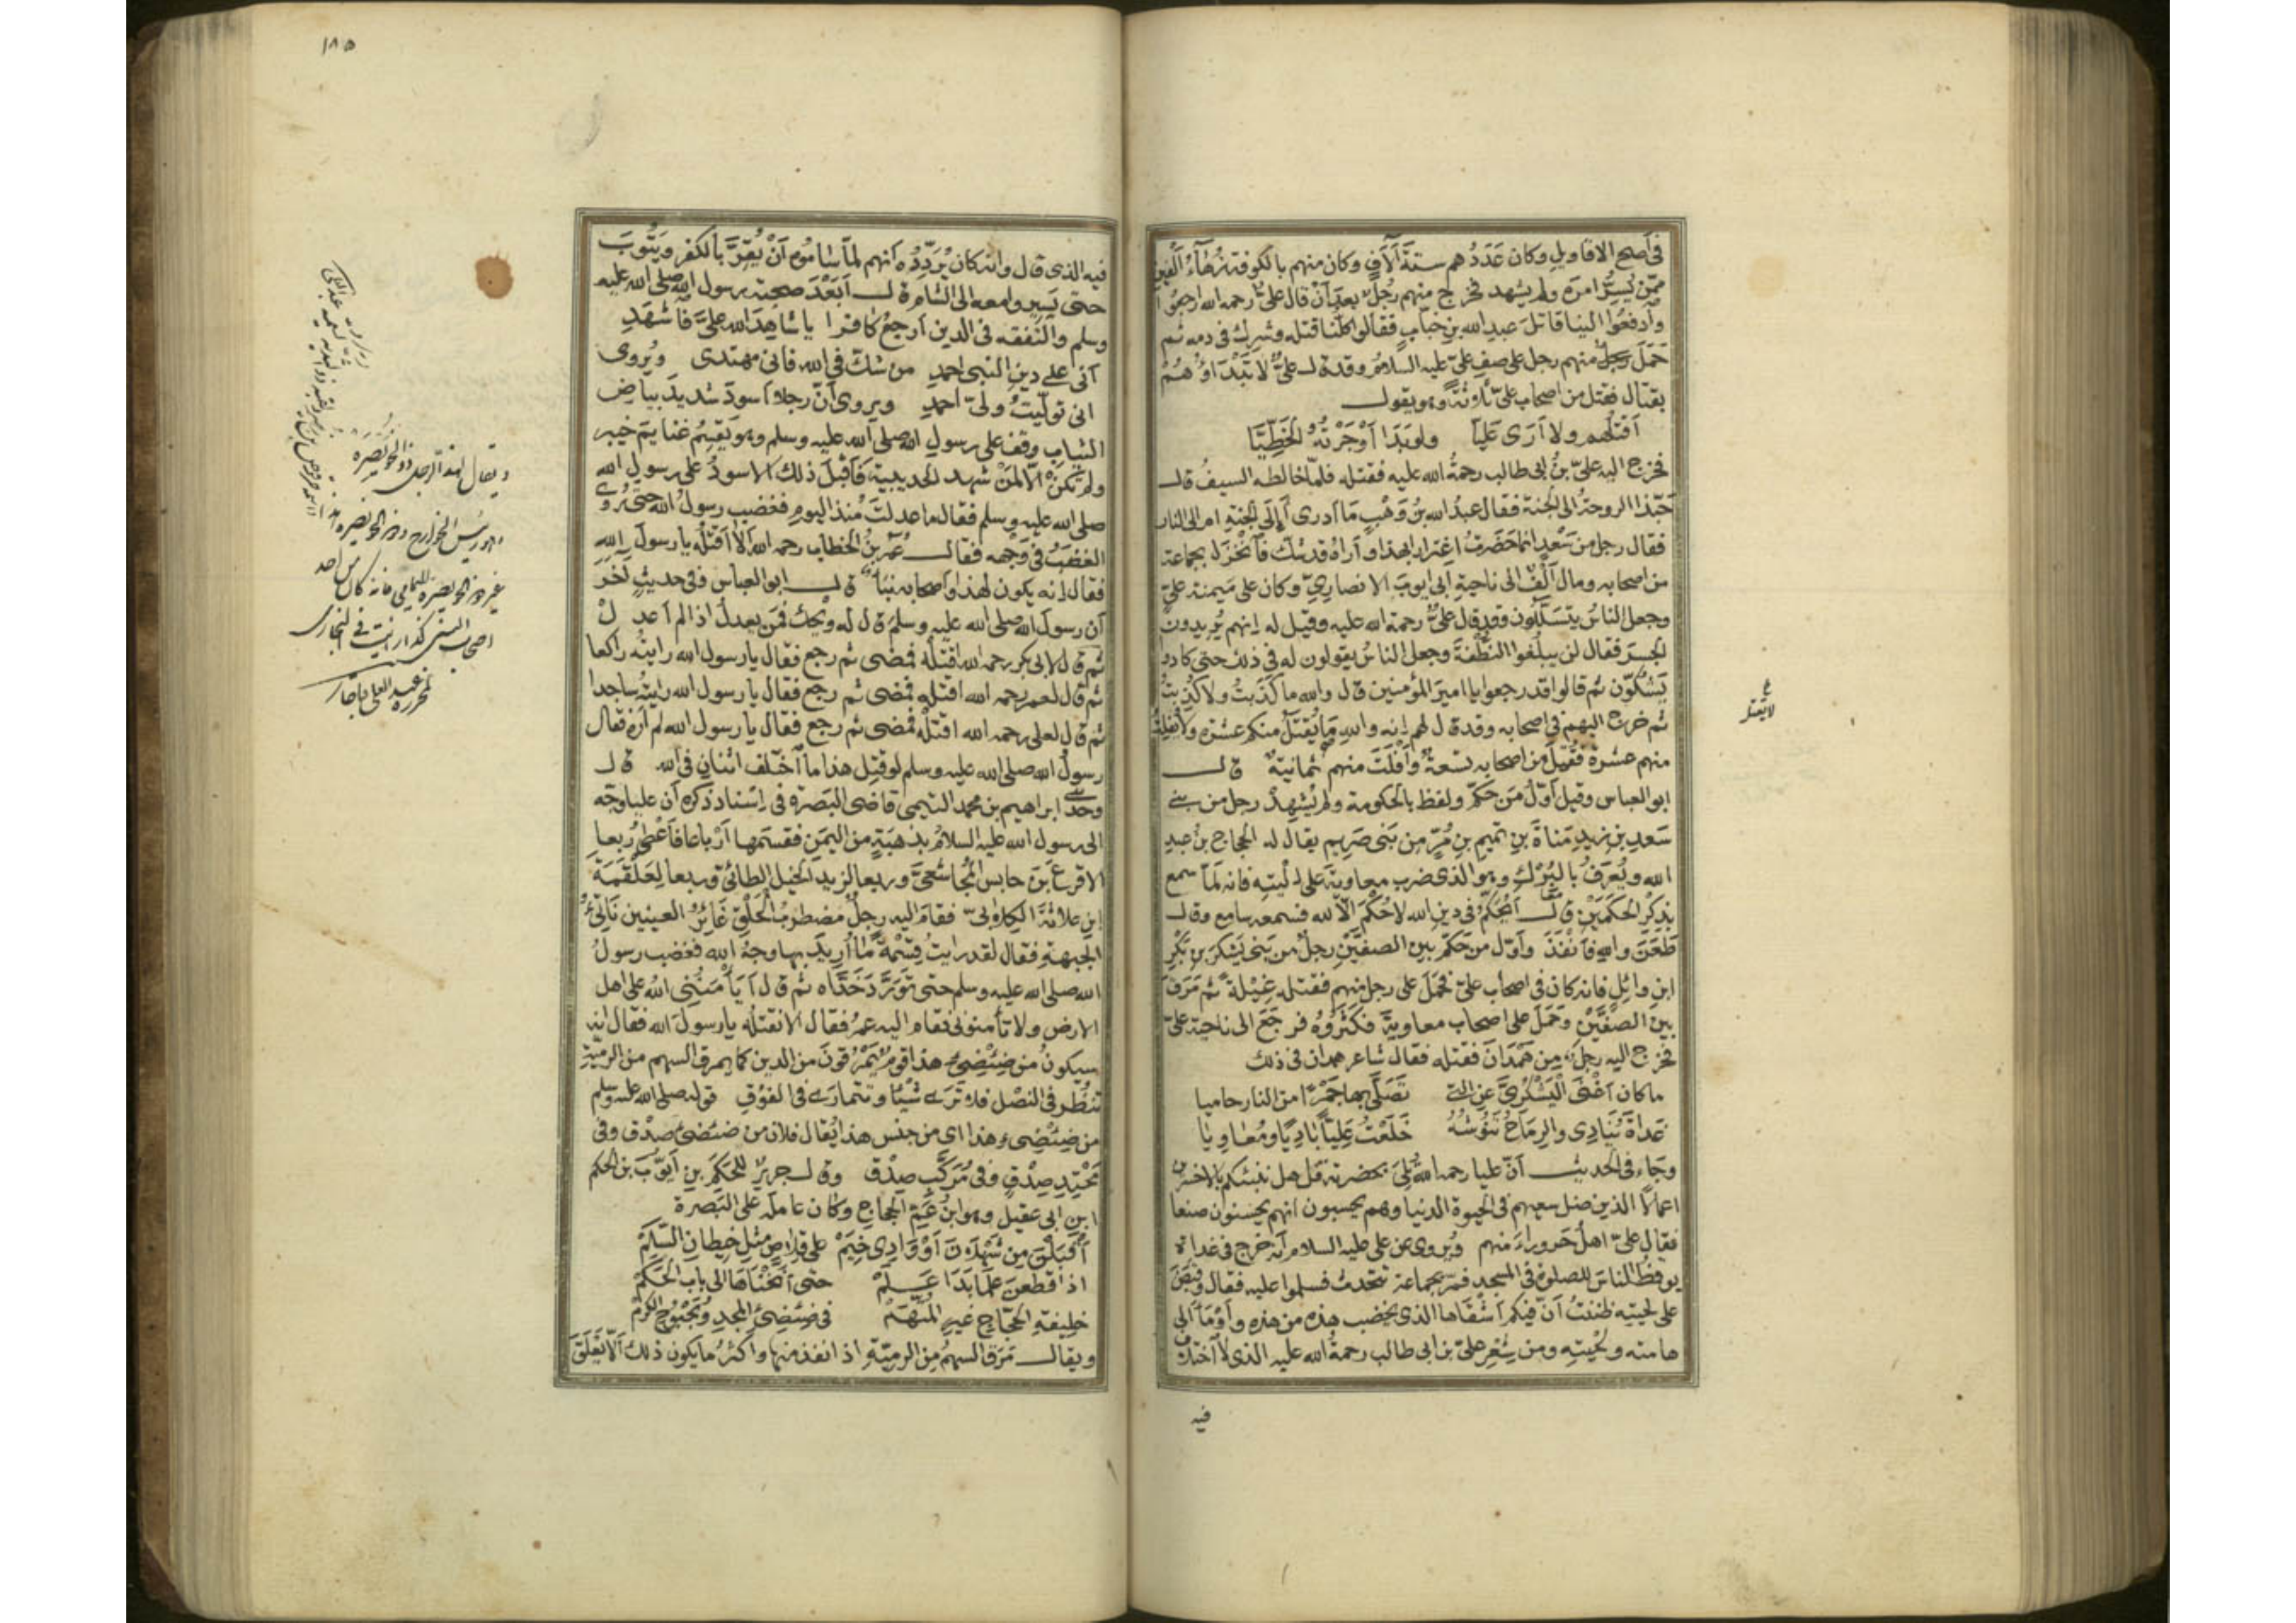 في أصح الاقاويل وكان عَدَدُهم ستةَ آلَافٍ وكان منهم بالكوفة زُهَاءُ أَلْفَيْنِ
ممّن يُسِرُّ امرَه ولم يشهد فخرج منهم رُجلٌ بعد أنْ قال عليٌّ رحمه الله ارجعوا
وادفعُوا الينا قاتلَ عبدِ الله بنِ خبّابٍ فقالوا كلُّنا قتله وشَرِكَ في دمه ثم
حَمَلَ رجلٌ منهم رجل على صفِ عليٍّ عليه السلامُ وقد قال عليٌّ لا تَبْدَاوُهُمْ
بقتال فقتل من اصحاب عليّ ثلاثةً وهو يقول
أَقْتُلُهم ولا أَرَى عَلِيّا ولو بَدَا أَوْجَرْتُهُ الخَطِّيَّا
فخرج اليه عليّ بنُ ابى طالب رحمةُ الله عليه فقتله فلمّا خالطه السيفُ قال
حَبّذا الروحةُ الى الجنة فقال عبدُ الله بنُ وَهْبٍ مَا أدرى أَإِلَى الجنةِ ام الى النار
فقال رجل من سَعْدٍ انما حَضَرتُ اغتِرارا بهذا وأَراهُ قد شك فَانْخَزَلَ بجماعة
من اصحابه ومال أَلْفٌ الى ناحيةِ ابى ايوبَ الانصارِيّ وكان على مَيمنة عليّ
وجعل الناسُ يتسَلَّلُون وقد قال عليٌّ رحمة الله عليه وقيل له اِنهم يُريدون
الجسرَ فقال لن يبلُغوا النُّطْفةَ وجعل الناسُ يقولون له في ذلك حتى كادوا
يَشُكّون ثم قالوا قد رجعوا يا اميرَ المؤمنين قال والله ما كَذَبتُ ولا كُذِبتُ
ثم خرج اليهم في اصحابه وقد قال لهم اِنه واللهِ مَا يُقْتَلُ منكم عشرة ولا يُفْلِتُ
منهم عشرة فقُتِلَ من اصحابه تسعةٌ وأَفْلَتَ منهم ثمانيةٌ قال
ابو العباس وقيل أَوّلُ مَن حَكّمَ ولفظ بالحكومة ولم يُشِهدْ رجل من بنى
سَعدِ بنِ زيدِ مَناةَ بنِ تميمِ بنِ مُرٍّ من بَنى صَرِيم يقال له الحجاج بنُ عبدِ
الله ويُعرَفُ بالبُرَك وهو الذى ضرب معاويةَ على اَلْيتِه فانه لمّا سمع
بذِكْرِ الحكَمَيْنِ قال أَيُحَكَّمُ في دينِ الله لا حُكْمَ الّا لله فسمعه سامع وقال
طَعَنَ واللهِ فَأَنْفَذَ وأَوّل من حَكّمَ بين الصفَّيْنِ رجلٌ من بَنى يَشكَرَ بنِ بَكْرِ
ابنِ وائِلٍ فانه كان في اصحاب عليّ فحَمَلَ على رجل منهم فقتله غِيْلةً ثم مَرَقَ
بين الصفَّيْنِ وحَمَلَ على اصحاب معاويةَ فكَثَرُوهُ فرجَعَ الى ناحية عليّ
فخرج اليه رجلٌ من هَمْدَانَ فقتله فقال شاعر همدان في ذلك
ما كان أَغْنَى الْيَشْكُرِىَّ عن التى تَصَلَّى بها جَمْرًا من النار حاميا
غداةَ يُنَادِى والرِمَاحُ تَنُوشُهُ خَلَعْتُ عَلِيًّا بَادِيًا ومُعَاوِيَا
وجاء في الحديث أَنّ عليا رحمه الله تُلِىَ بحضرته قل هل ننبئكم بالاخسرين
اعمالًا الذين ضل سعيهم في الحيوة الدنيا وهم يحسبون انهم يحسنون صنعا
فقال عليّ اهلُ حَروراءَ منهم ويُروى عن علي عليه السلام أنه خرج في غداة
يوقظ الناسَ للصلوة في المسجد فمَرّ بجماعة تتحدث فسلموا عليه فقال وقبَضَ
على لحيته ظننتُ أَنّ فيكم اَشْقَاها الذى يخضب هذه من هذه واَوْمَأَ الى
هامته ولِحْيتِه ومن شِعْرِ عليّ بن ابى طالب رحمةُ الله عليه الذى لا اختلاف
فيه
لا يقتل
١٨٥
فيه الذى قال وانه كان يُرَدِّدُه أنهم لمّا ساموْه أَنْ يُقِرَّ بالكفر ويَتُوبَ
حتى يَسِيروا معه الى الشام قال اَبَعْدَ صحبة رسول الله صلى الله عليه
وسلم والتفقه في الدين اَرجعُ كافرا يا شاهدَ الله عليَّ فاشْهَدِ
أنى على دينِ النبى احمدِ من شك في الله فانى مهتدى ويُروى
انى تولّيتُ ولىّ احمدِ ويروى أَنّ رجلا أسودَ شديدَ بياضِ
الثياب وقف على رسول الله صلى الله عليه وسلم وهو يَقسِمُ غنايمَ خيبر
ولم تكنْ اِلّا لمَنْ شهد الحديبيةَ فأَقْبلَ ذلك الاسودُ على رسولِ الله
صلى الله عليه وسلم فقال ما عدلتَ مُنذ اليومِ فغضب رسولُ الله حتى رُوى
الغضبُ في وَجهه فقال عُمرُ بنُ الخطاب رحمه الله أَلَا أَقتُلُه يا رسولَ الله
فقال اِنه يكون لهذا واصحابه نَبَأٌ قال ابو العباس وفي حديثٍ آخر
أن رسولَ الله صلى الله عليه وسلم قال له ويْحَك فمَن يعدلُ اذا لم أعدلْ
ثم قال لابى بكر رحمه الله اقتلْه فمضى ثم رجع فقال يا رسول الله رايتُه راكعا
ثم قال لعمر رحمه الله اقتلْه فمضى ثم رجع فقال يا رسول الله رايتُه ساجدا
ثم قال لعلى رحمه الله اقتلْه فمضى ثم رجع فقال يا رسول الله لم أَرَه فقال
رسولُ الله صلى الله عليه وسلم لو قُتِل هذا ما أختلف اثنانِ في الله قال
وحدثنى ابراهيم بن محمد التيمى قاضى البَصرة في اِسْناد ذكره أن عليا وجّه
الى رسول الله عليه السلامُ بذَهَبَةٍ من اليمَن فقَسَمها أَرْباعا فأعْطى رُبعا
الاقرعَ بنَ حابس المُجاشعيَّ وربعا لزيد الخيل الطائىّ وربعا لعَلْقَمَةَ
ابنِ علاثةَ الكلابىّ فقام اليه رجلٌ مضطربُ الخَلْقِ غَائرُ العينين نَاتِئُ
الجبهةِ فقال لقد رايتُ قِسْمةً مَا أُرِيدَ بها وجهُ الله فغضب رسولُ
الله صلى الله عليه وسلم حتى تَورَّدَ خَدَّاه ثم قال أَيَأْمَنُنِى اللهُ على اهل
الارض ولا تأمنونى فقام اليه عمرُ فقال ألا نقتلُه يا رسولَ الله فقال انه
سيكونُ من ضِئْضِئِ هذا قومٌ يَمْرُقونَ من الدين كما يمرق السهم من الرميّةِ
تنظُر في النصْل فلا تَرَى شَيْئا وتتمارَى في الفُوْقِ قوله صلى الله عليه وسلم
من ضِئْضِئِ هذا اى من جنس هذا يُقال فلان من ضئضئِ صِدْق وفى
مَحْتِدِ صِدْقٍ وفى مُرَكَّبِ صِدْقٍ وقال جرير للحَكَمِ بنِ أَيّوبَ بن الحكم
ابن ابى عقيل وهو ابنُ عَمِّ الحجاجِ وكان عاملَه على البَصرة
أَقْبَلْنَ من ثَهْلَانَ أَوْ وَادِى خِيَمْ على قِلَاصٍ مثلِ خِيطانِ السَّلَمْ
اذا قطعنَ عَلَمًا بَدَا عَلَمْ حتى أَنَخْنَاهَا الى بابِ الحَكَمْ
خليفةِ الحجّاجِ غيرِ المُتّهَمْ في ضئضئِ المجدِ وبُحْبُوحِ الكرَمْ
ويقال مَرَقَ السهمُ مِن الرميّةِ اذا نفذ منها واكثرُ ما يكون ذلك أَلّا يَعْلَقَ
ويقال لهذا الرجل ذو الخويصرة
وهو رئيس الخوارج وذو الخويصرة هذا
غير ذو الخويصرة اليمانى فانه كان من احد
اصحاب النبى كذا رايت في البخارى
لمحرره عبد العلى